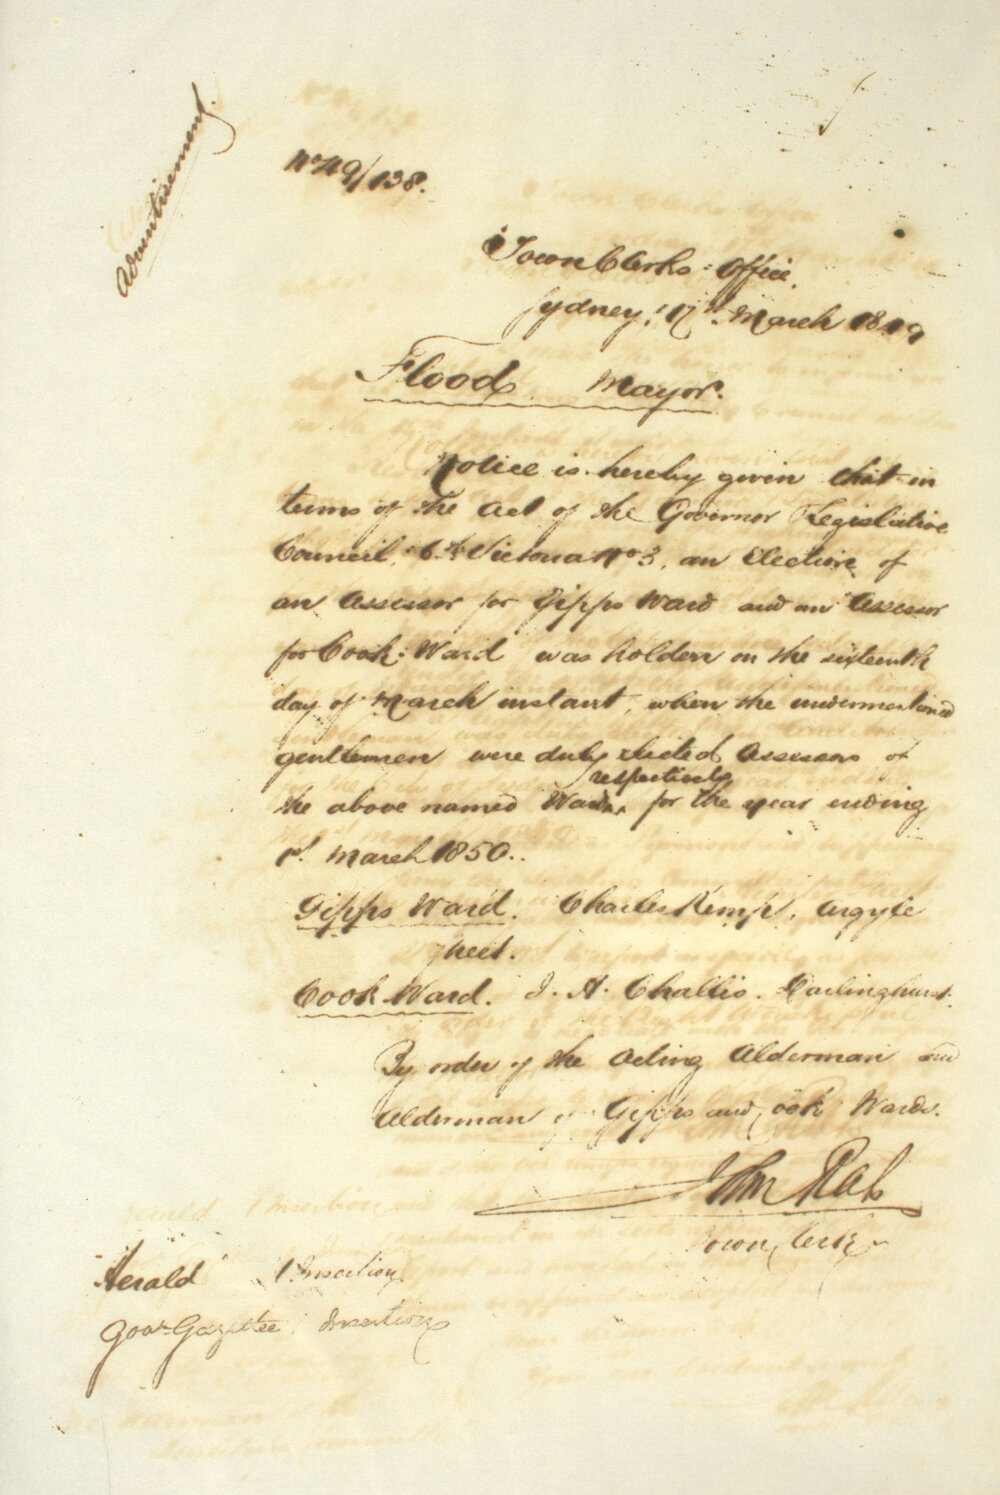 Advertisement.
No 49/138.
Town Clerks Office,
Sydney, 17th March 1849
Flood, Mayor.
Notice is hereby given that in
terms of the Act of the Governor Legislative
Council, 6th Victoria No 3, an Election of
an Assessor for Gipps Ward and an Assessor
for Cook Ward was holden on the sixteenth
day of March instant, when the undermentioned
gentlemen were duly elected Assessors of
respectively
the above named Wards, for the year ending
1st March 1850.
Gipps Ward. Charles Kemp, Argyle
Street.
Cook Ward. J. H. Challis. Darlinghurst.
By order of the Acting Alderman and
Alderman of Gipps and Cook Wards.
John Rae
Town Clerk
"Herald" 1 Insertion
Govt Gazettee Insertion